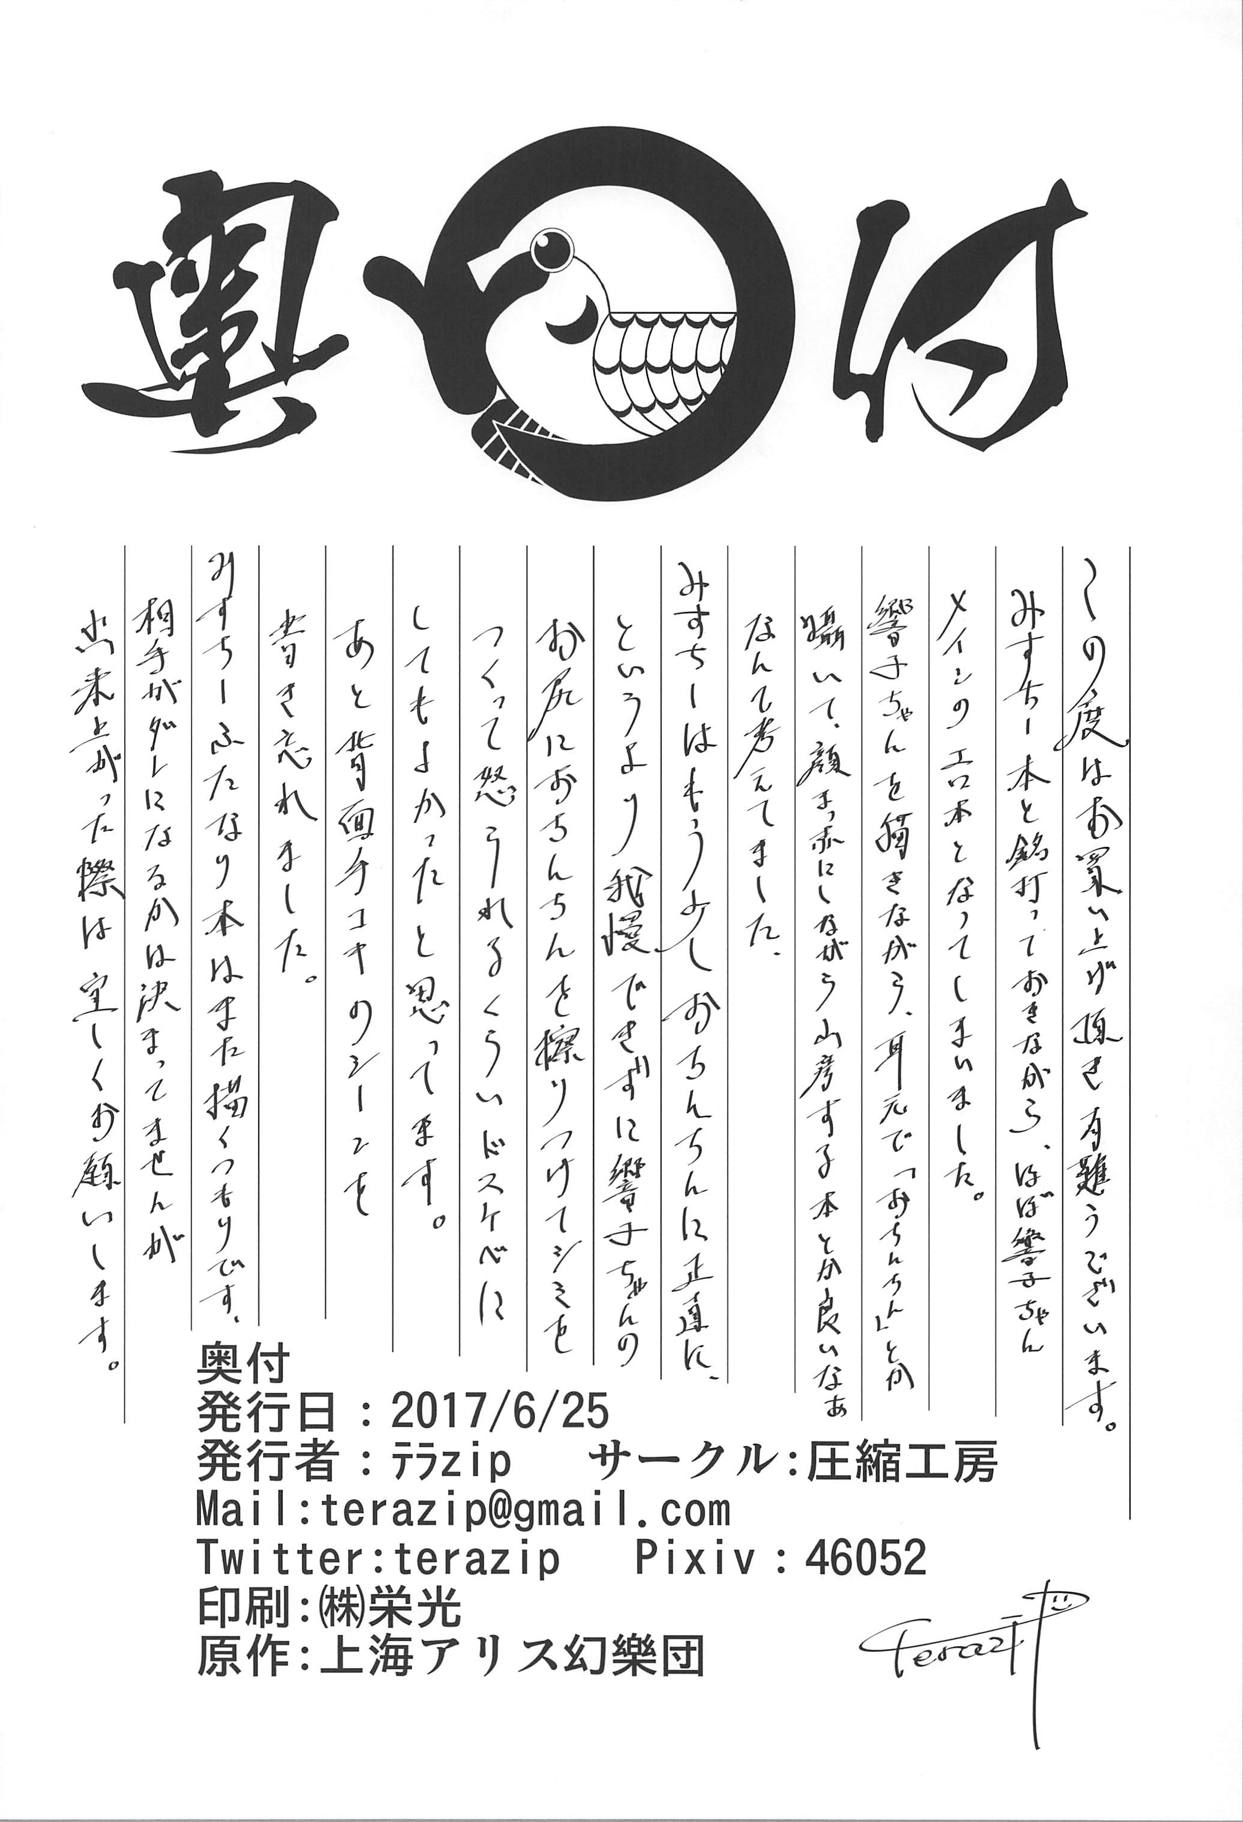 奥付
この度はお買い上げ頂き有難うございます。
みすちー本と銘打っておきながら、ほぼ響子ちゃん
メインのエロ本となってしまいました。
響子ちゃんを描きながら、耳元で「おちんちん」とか
囁いて、顔まっ赤にしながら山彦する本とか良いなあ
なんて考えてました、
みすちーはもう少しおちんちんに正直に、
というより我慢できずに響子ちゃんの
お尻におちんちんを擦りつけてシミを
つくって怒られるくらいドスケベに
してもよかったと思ってます。
あと背面手コキのシーンを
書き忘れました。
みすちーふたなり本はまた描くつもりです、
相手がダレになるかは決まってませんが
出来上がった際は宜しくお願いします。
奥付
発行日：2017/6/25
発行者：ﾃﾗzip サークル:圧縮工房
Mail:terazip@gmail.com
Twitter:terazip Pixiv：46052
印刷:㈱栄光
原作:上海アリス幻樂団
Terazip